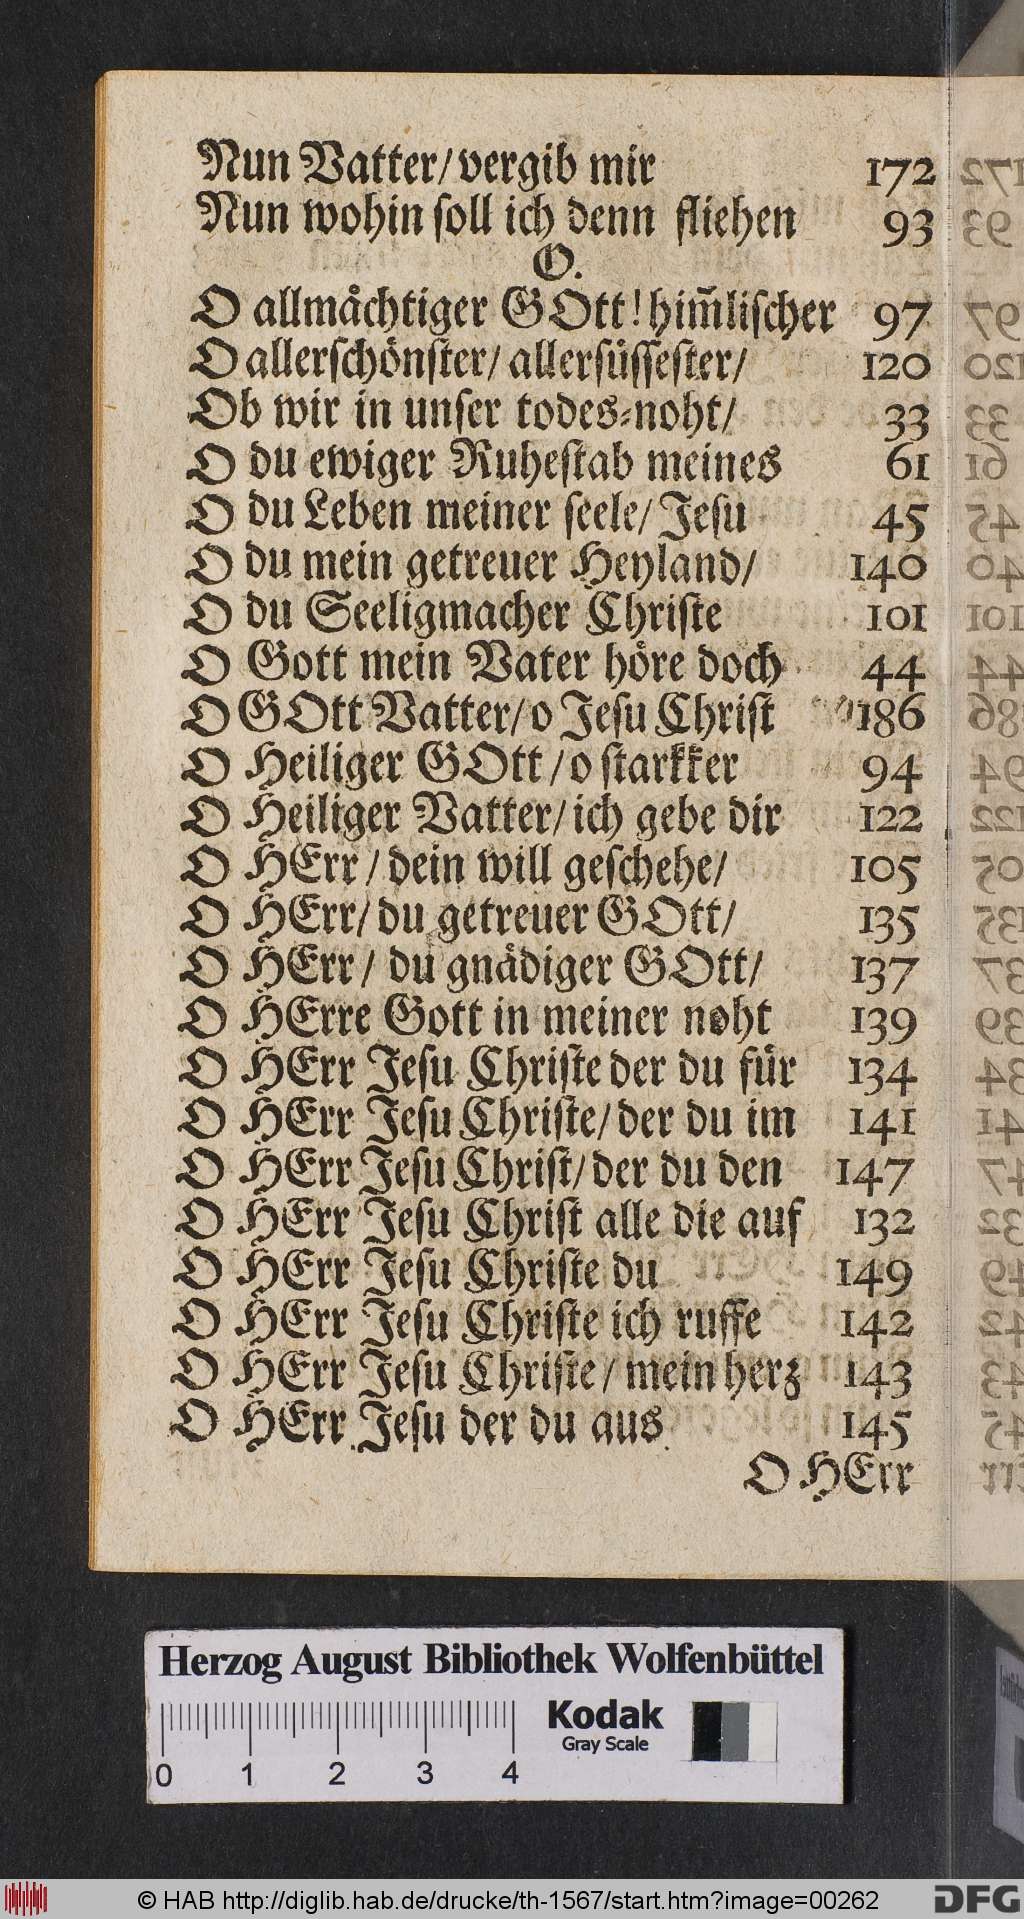 Nun Vatter/vergib mir 172
Nun wohin soll ich denn fliehen 93
O.
O allmåchtiger GOtt! him̃lischer 97
O allerschönster/ allersüssester/ 120
Ob wir in unser todes-noht/ 33
O du ewiger Ruhestab meines 61
O du Leben meiner seele/ Jesu 45
O du mein getreuer Heyland/ 140
O du Seeligmacher Christe 101
O Gott mein Vater höre doch 44
O GOtt Vatter/ o Jesu Christ 186
O Heiliger GOtt/ o starkker 94
O Heiliger Vatter/ ich gebe dir 122
O HErr/ dein will geschehe/ 105
O HErr/ du getreuer GOtt/ 135
O HErr/ du gnädiger GOtt/ 137
O HErre Gott in meiner noht 139
O HErr Jesu Christe der du für 134
O HErr Jesu Christe/ der du im 141
O HErr Jesu Christ/ der du den 147
O HErr Jesu Christ alle die auf 132
O HErr Jesu Christe du 149
O HErr Jesu Christe ich ruffe 142
O HErr Jesu Christe/ mein herz 143
O HErr Jesu der du aus 145
O HErr
Herzog August Bibliothek Wolfenbüttel
Kodak
Gray Scale
0 1 2 3 4
© HAB http://diglib.hab.de/drucke/th-1567/start.htm?image=00262
DFG